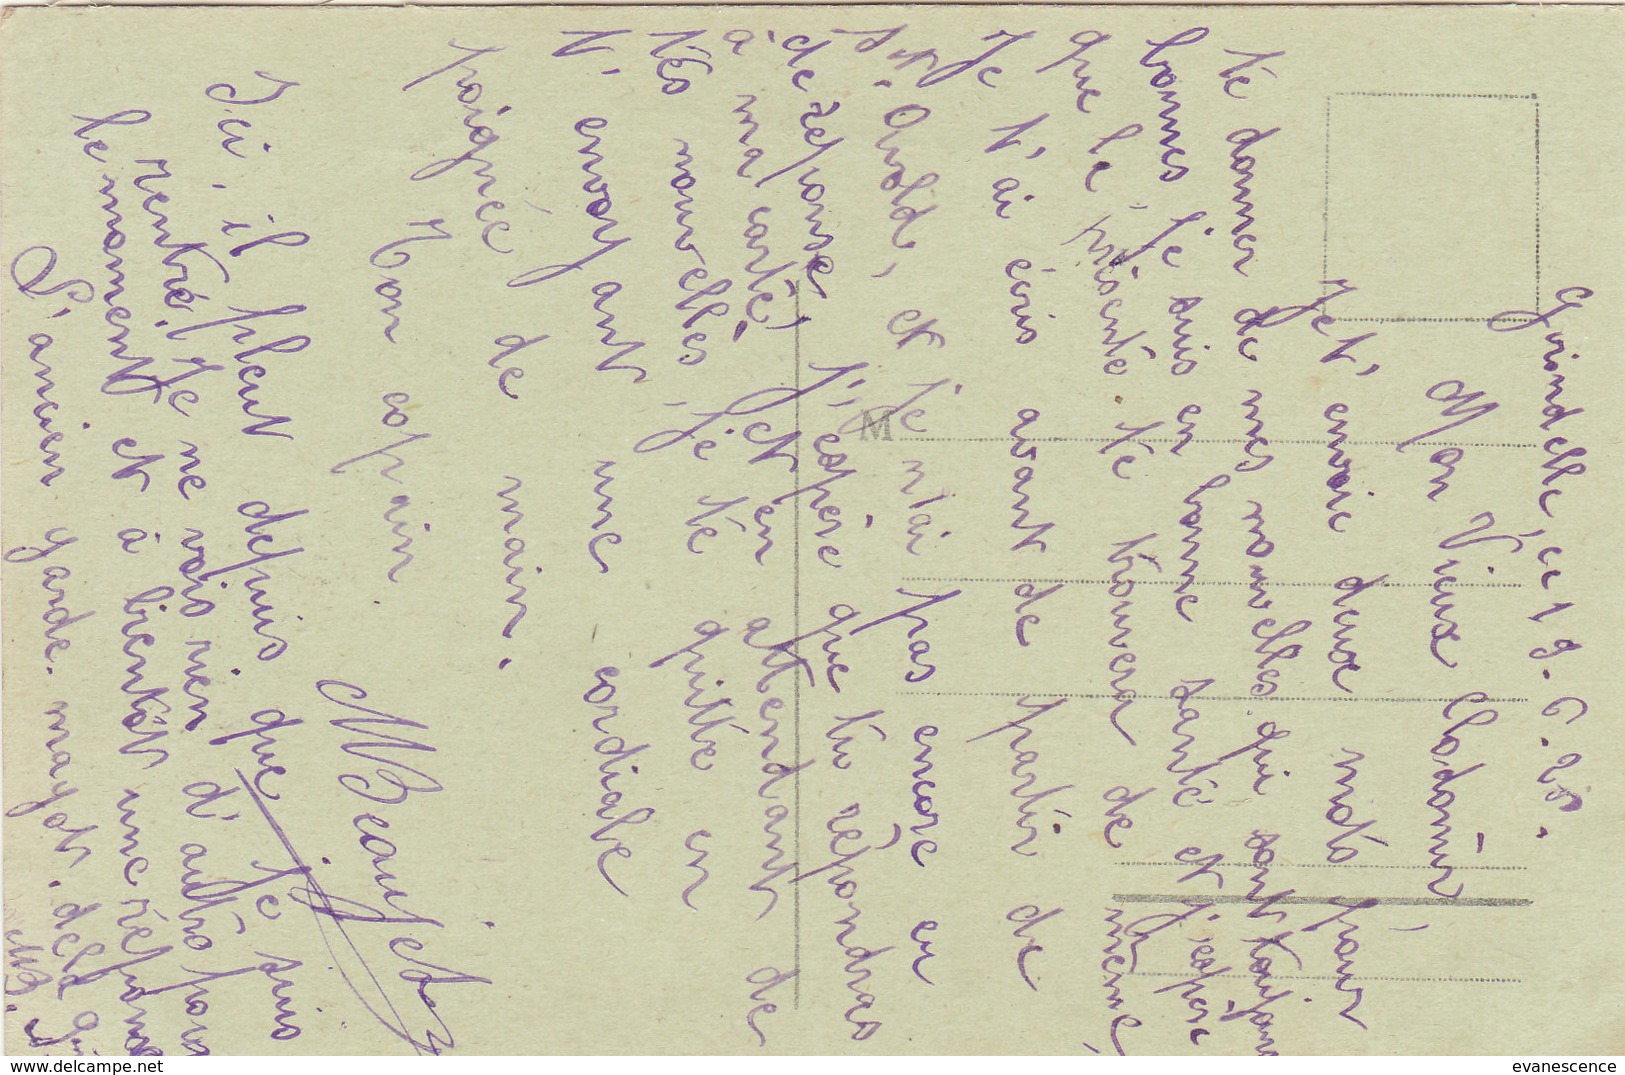 Grindelle, ce 19.6.28.
Mon Vieux Clodomir,
Je t'envoie deux mots pour
te donner de mes nouvelles qui sont toujours
bonnes je suis en bonne santé et j'espère
que le, présente te trouvera de même,
Je t'ai écris avant de partir de
et je n'ai pas encore eu
de réponse, j'espère que tu répondras
à ma carte. Et en attendant de
tes nouvelles, je te quitte en
t'envoyant une cordiale
poignée de main.
Ton copain.
MBeaujet
Ici, il pleut depuis que je suis
rentré. Je ne vois rien d'autre pour
le moment et à bientôt une réponse
L'ancien garde. mayot.
MB.
M
delcampe.net
evanescence